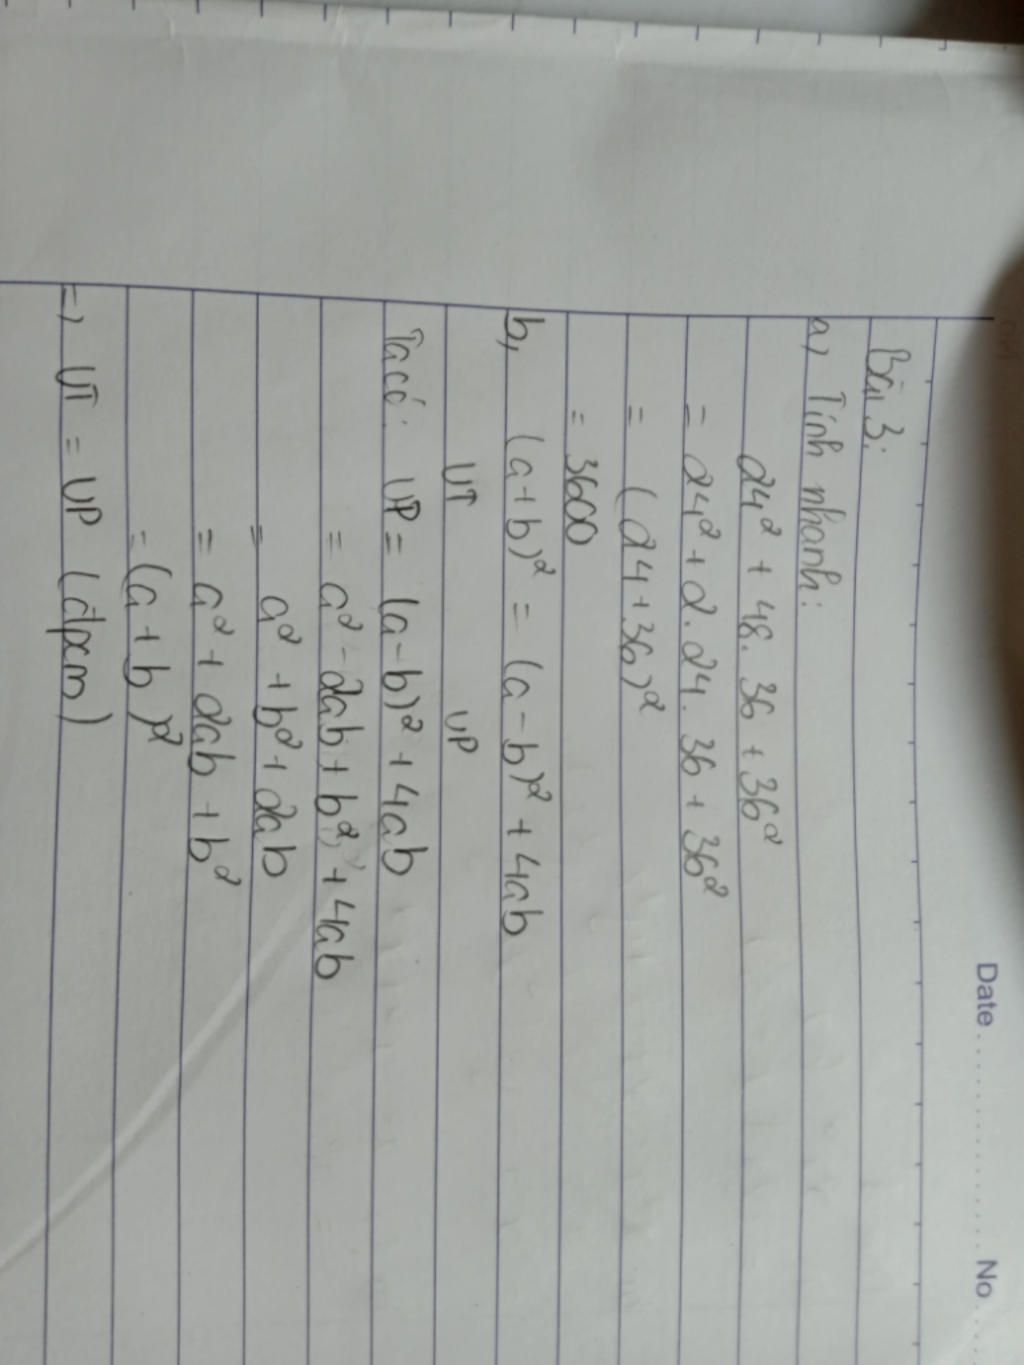 Date........... No....
Bài 3:
a, Tính nhanh:
24² + 48. 36 + 36²
= 24² + 2. 24. 36 + 36²
= (24 + 36)²
= 3600
b, (a+b)² = (a-b)² + 4ab
VT VP
Ta có: VP = (a-b)² + 4ab
= a² - 2ab + b² + 4ab
= a² + b² + 2ab
= a² + 2ab + b²
= (a + b)²
=> VT = VP (đpcm)